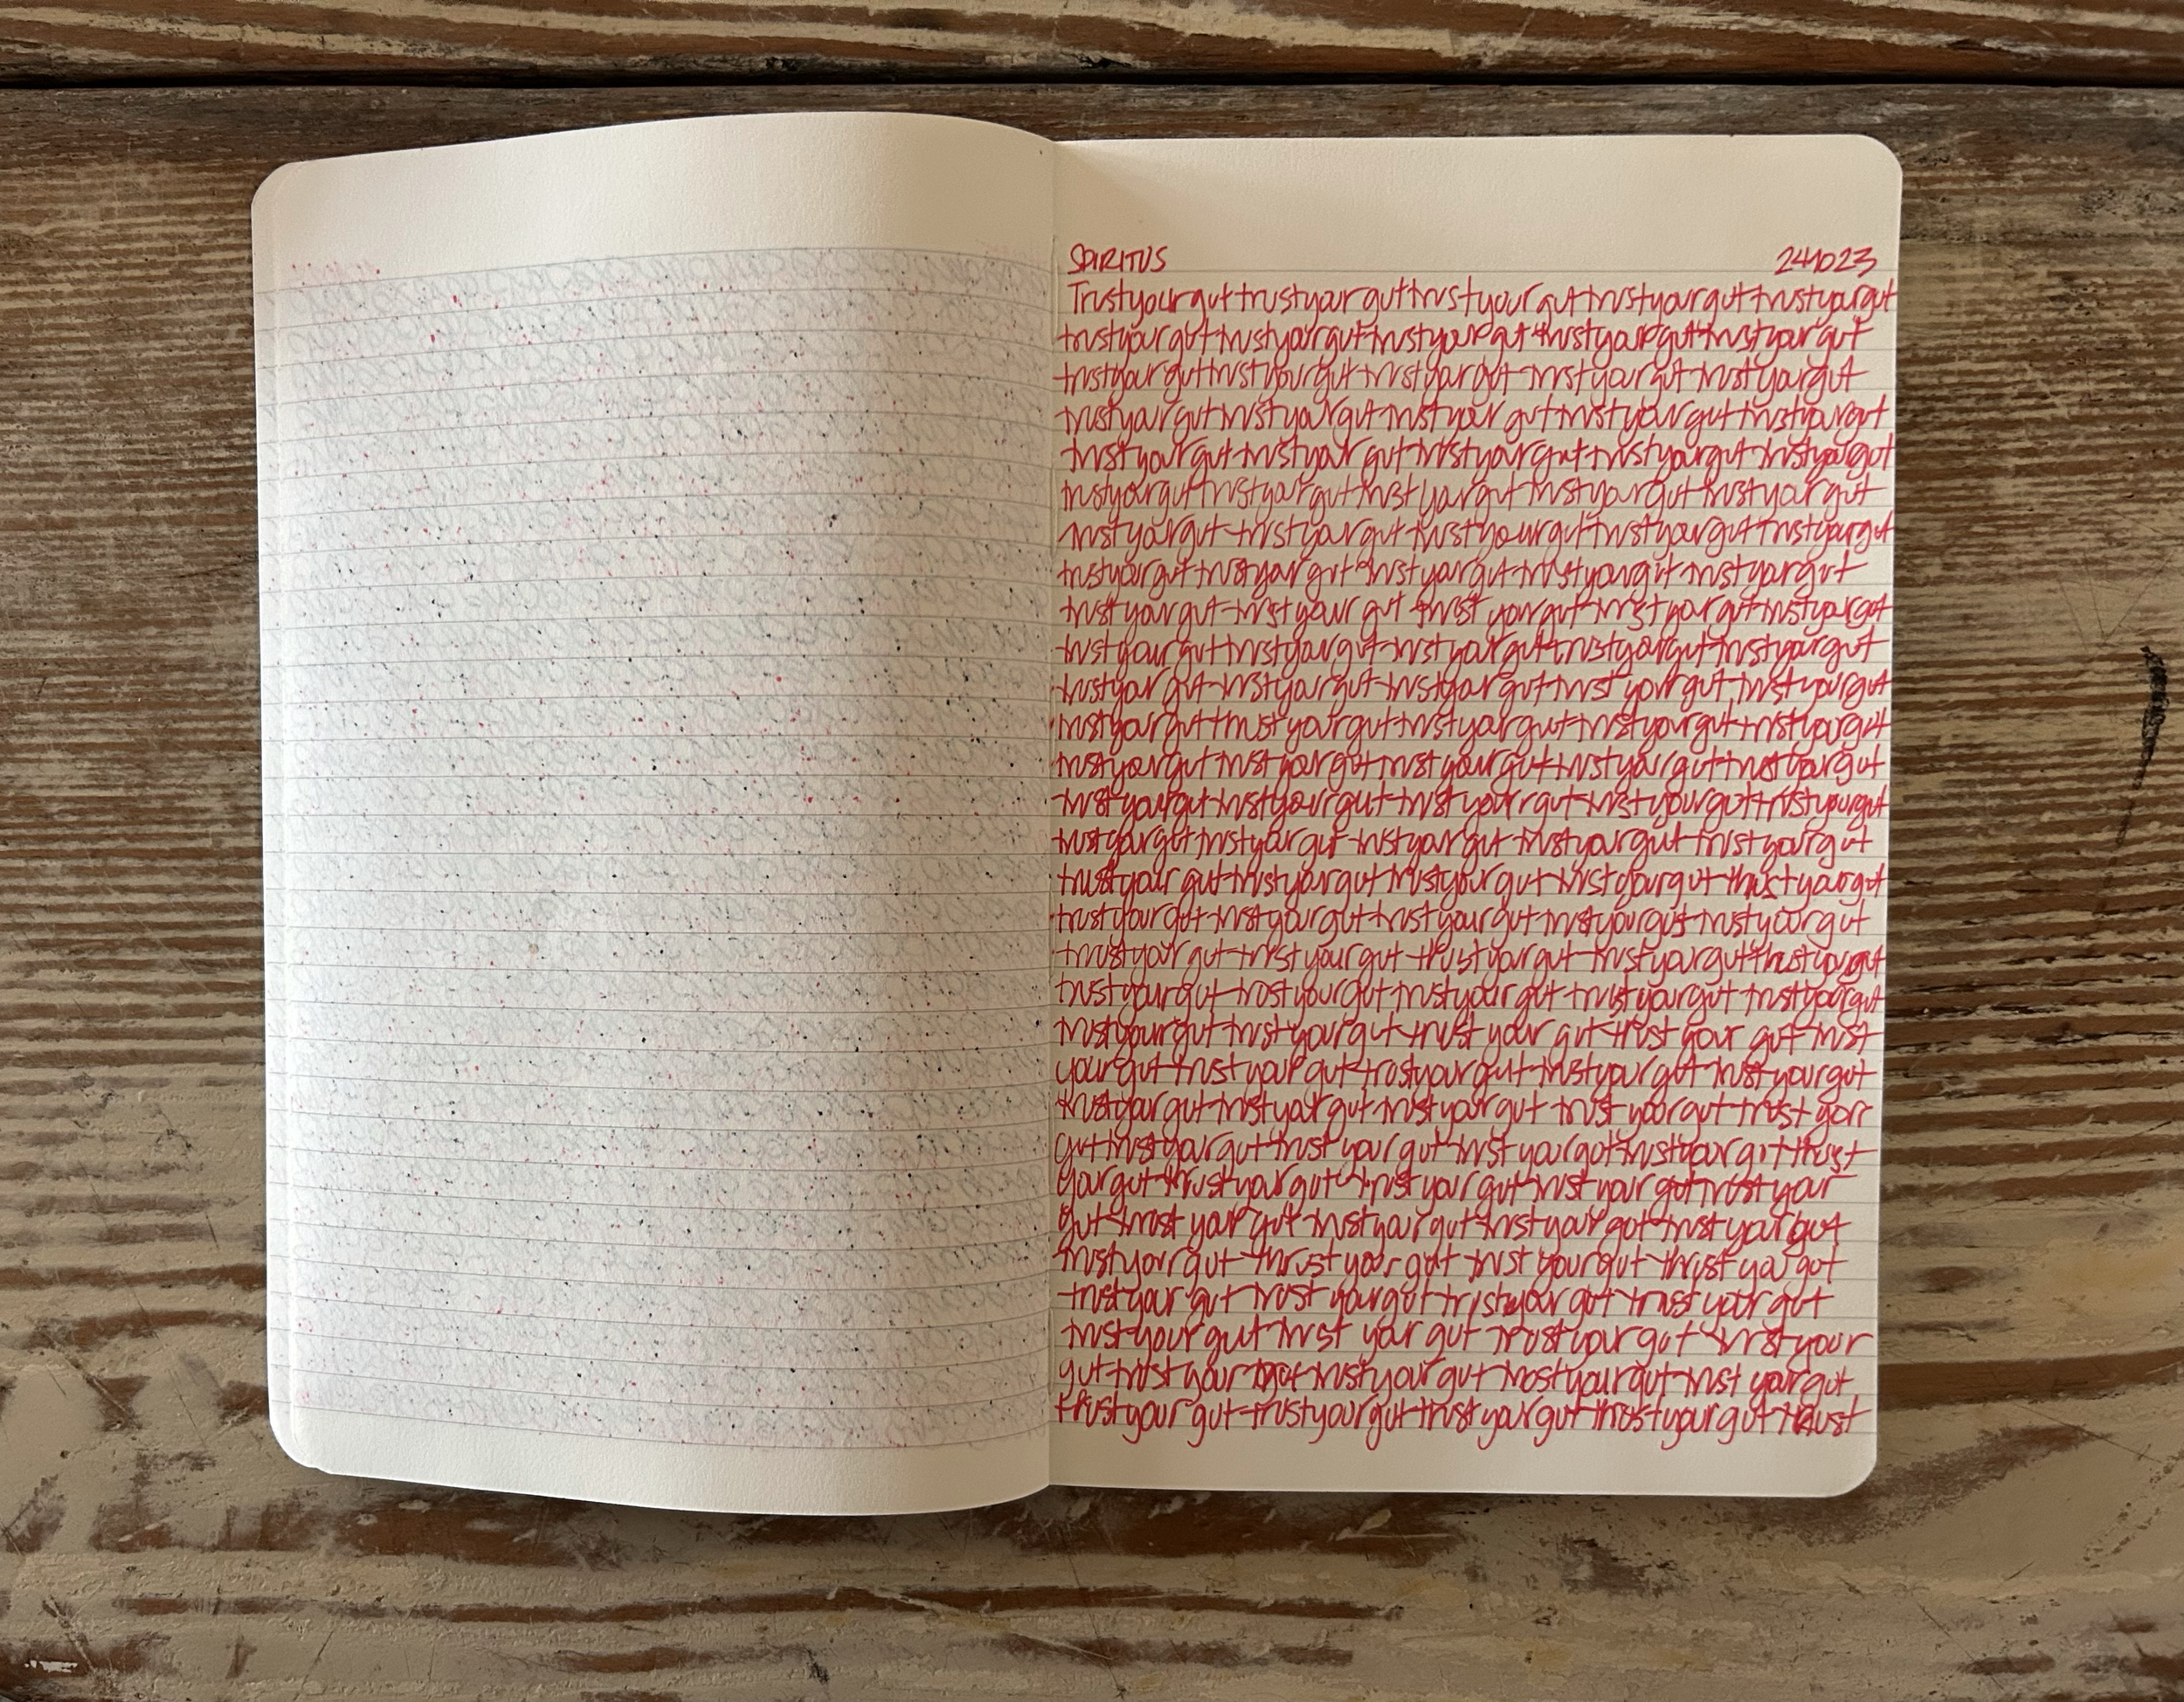 SPIRITUS 241023
Trustyourgut trustyourgut trustyour gut trustyourgut trustyourgut
trustyour gut trustyourgut trustyour gut trustyourgut trustyour gut
trustyour gut trustyourgut trustyour gut trustyourgut trustyourgut
trustyour gut trustyourgut trustyour gut trustyour gut trustyourgut
trustyour gut trustyour gut trustyour gut trustyourgut trustyourgut
trustyourgut trustyour gut trustyour gut trustyourgut trustyour gut
trustyourgut trustyour gut trustyourgut trustyour gut trustyourgut
trustyour gut trustyour gut trustyour gut trustyourgut trustyour gut
trust your gut trust your gut trust your gut trust your gut trustyourgut
trustyour gut trustyourgut trustyour gut trustyourgut trustyourgut
trustyour gut trustyour gut trustyour gut trust your gut trustyourgut
trustyour gut trust your gut trustyour gut trustyourgut trustyourgut
trustyour gut trust your gut trust your gut trustyour gut trustyour gut
trustyourgut trustyourgut trust your gut trustyourgut trustyourgut
trustyourgut trustyour gut trustyour gut trustyour gut trustyour gut
trustyour gut trustyour gut trustyour gut trustyour gut trust your gut
trustyour gut trustyour gut trustyour gut trustyourgut trustyour gut
trustyour gut trust your gut trustyour gut trustyour gut trustyourgut
trustyour gut trust your gut trustyour gut trustyour gut trustyourgut
trustyourgut trust your gut trust your gut trust your gut trust
your gut trust your gut trustyour gut trustyour gut trust your gut
trustyour gut trustyour gut trustyour gut trust your gut trust your
gut trustyour gut trust your gut trust your gut trustyour gut trust
your gut trustyour gut trust your gut trust your gut trust your
gut trust your gut trustyour gut trust your gut trust your gut
trustyour gut trust your gut trust your gut trust you gut
trust your gut trust your gut trustyour gut trust your gut
trust your gut trust your gut trust your gut trust your
gut trust your gut trustyour gut trustyour gut trust your gut
trustyour gut trustyour gut trust your gut trust your gut trust